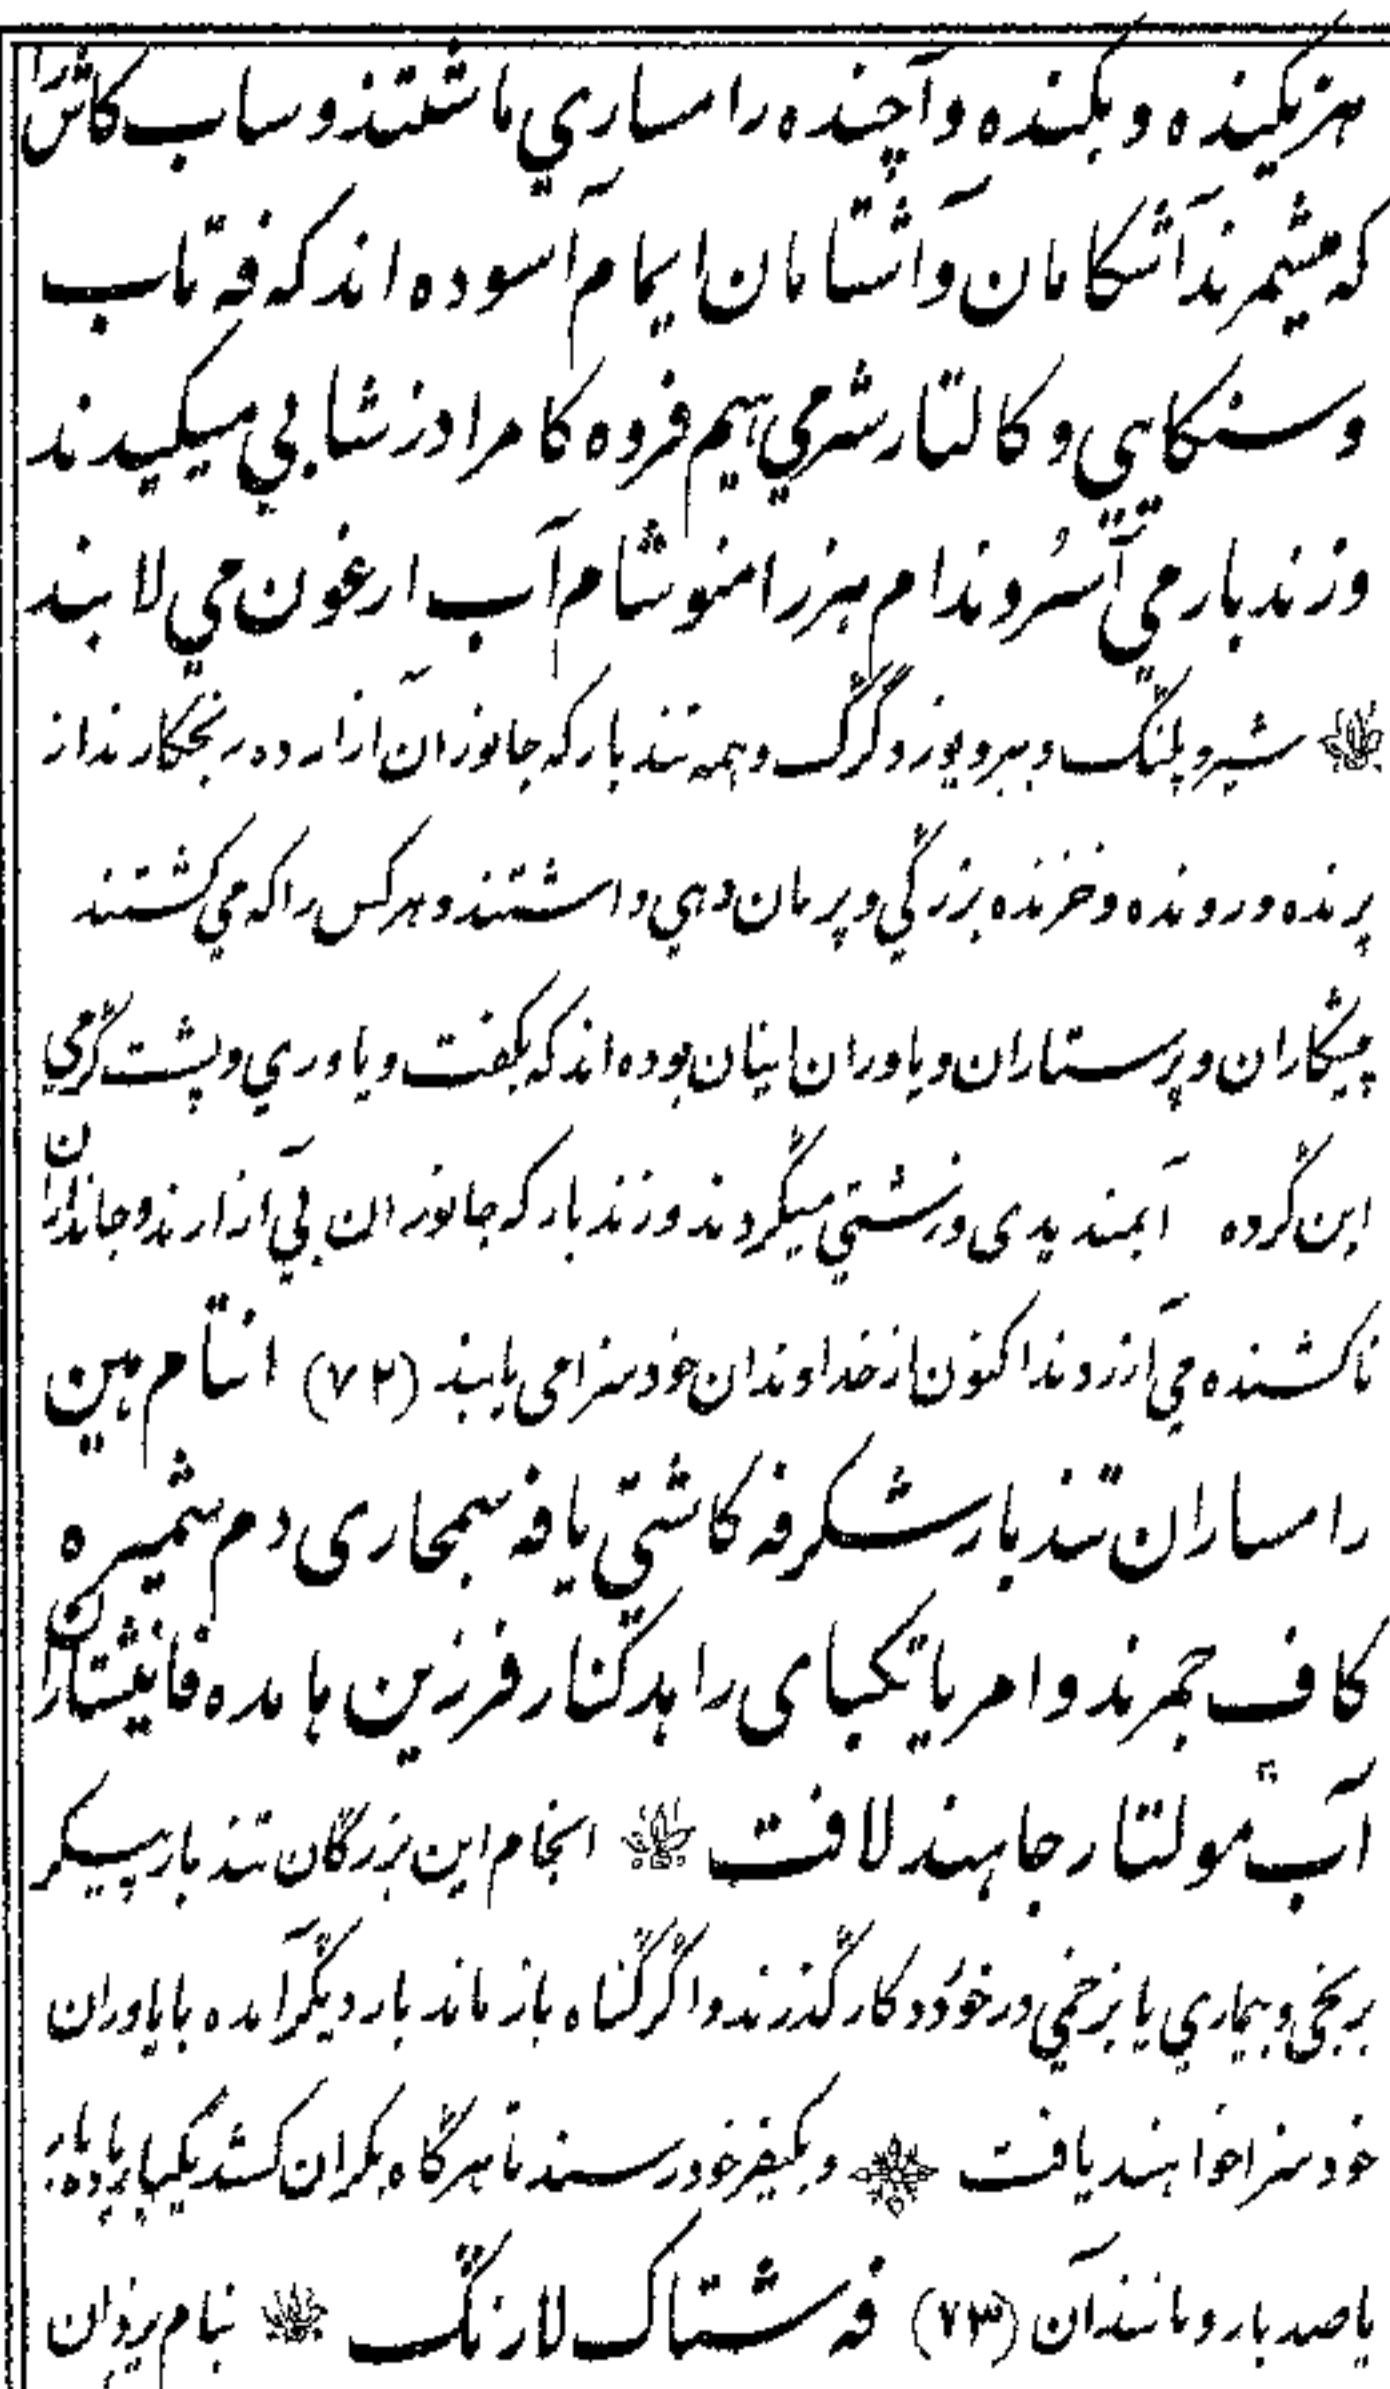 هزیکنده و بکنده و آچنده را مساري ماشتند و ساب کاش را
که میشمرند آشکامان و آشتامان ایمام آسوده اند که فه تاب
و سنکایي و کالتار شرمي هیم فروه کامرا وزشابي میکیدند
و زندبار مي آسروندام هزرامنوشام آب ارغون مي لابند
شیر و پلنگ و ببر و یوز و گرگ و همه تندبار که جانوران آزارده رنجکارند از
پرنده و رونده و خزنده بزرگي و پرمان دهي داشتند و هر کس را که مي کشتند
پیشکاران و پرستاران و یاوران اینان بوده اند که بگفت و یاوري و پشت گرمي
این گروه آبمند بدی و زشتي میگردند و زندبار که جانوران بي آزارند و جاندارانرا
ناکشنده مي آزردند اکنون از خداوندان خود سزا می یابند (۷۲) انتام هین
رامساران تندبار شکرفه کاشتي یا فه سمجاری دم شمیره
کاف جمرند و امر یا تکبای را هد کنار فرزین هامده فانیشتارانرا
آب مولتار جاهند لافت انجام این بزرگان تندبار پیکر
برنجی و بیماري یا بزخمي درخورد کار گذرند و اگر گناه باز ماند بار دیگر آمده با یاوران
خود سزا خواهند یافت و بکیفر خود رسند تا هرگاه بکران کشد یکبار یا ده بار
یا صد بار و مانند آن (۷۳) فه شتاک لارنگ بنام یزدان